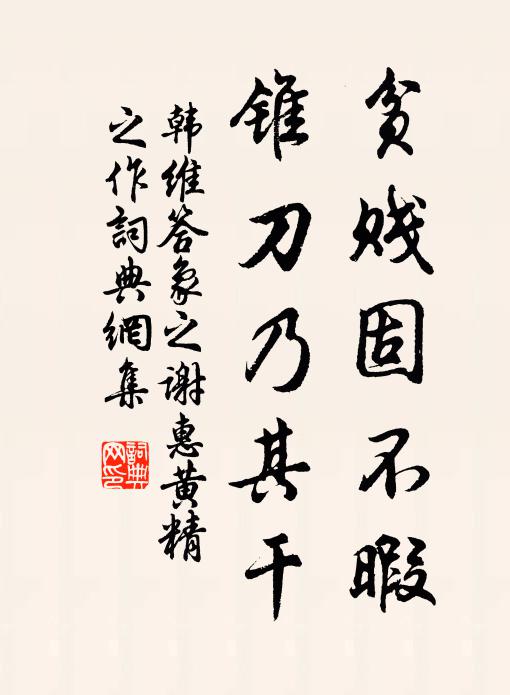 贫贱固不暇
锥刀乃其干
韩维答象之谢惠黄精
之作詞典網集
詞典
网印